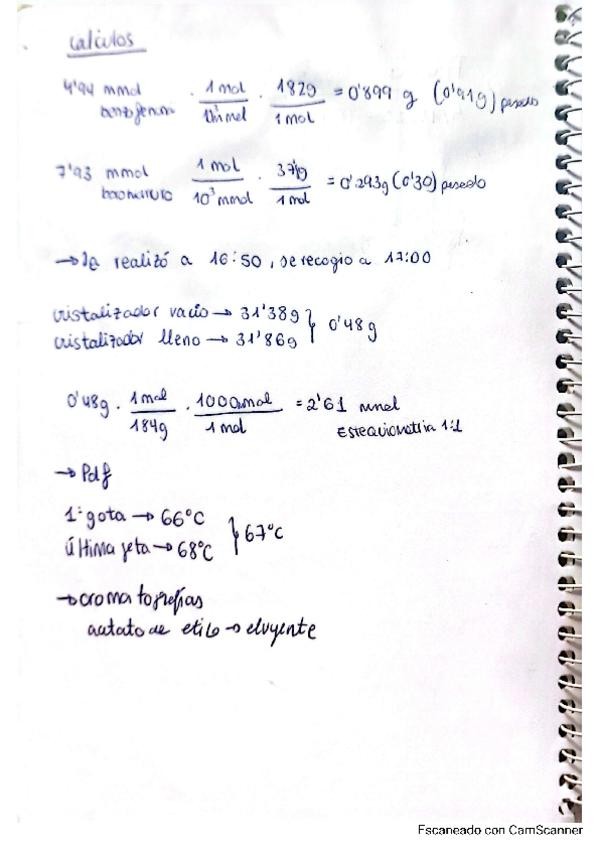 calculos
4'94 mmol benzofenona · 1 mol / 10³ mmol · 182g / 1 mol = 0'899 g (0'91g) pesado
7'93 mmol borohidruro 1 mol / 10³ mmol · 37g / 1 mol = 0'293g (0'30) pesado
→ Se realizó a 16:50, se recogio a 17:00
cristalizador vacio → 31'38g
cristalizador lleno → 31'86g } 0'48g
0'48g · 1 mol / 184g · 1000mmol / 1 mol = 2'61 mmol
Estequiometria 1:1
→ Pdf
1ª gota → 66°C
última gota → 68°C } 67°C
→ cromatografias
acetato de etilo → eluyente
Escaneado con CamScanner